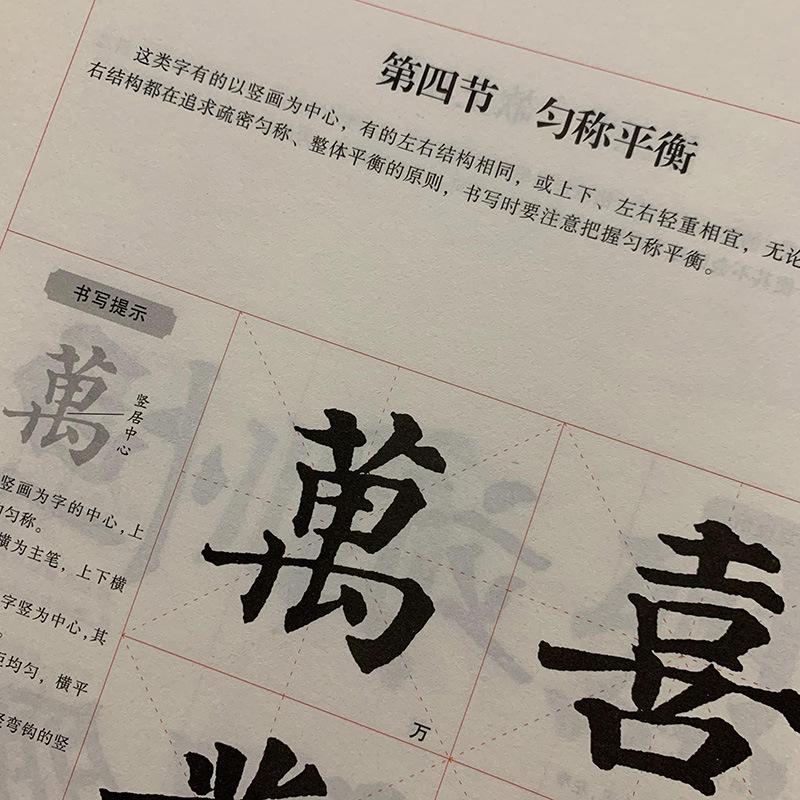 第四节 匀称平衡
这类字有的以竖画为中心，有的左右结构相同，或上下、左右轻重相宜，无论
右结构都在追求疏密匀称、整体平衡的原则，书写时要注意把握匀称平衡。
书写提示
萬
竖居中心
竖画为字的中心，上
匀称。
横为主笔，上下横
字竖为中心，其
距均匀，横平
竖弯钩的竖
萬
万
喜